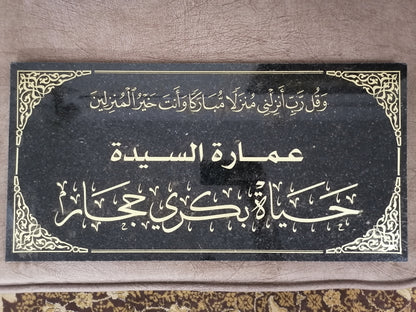 وَقُل رَّبِّ أَنزِلْنِي مُنزَلًا مُّبَارَكًا وَأَنتَ خَيْرُ الْمُنزِلِينَ
عمارة السيدة
حياة بكري حجار